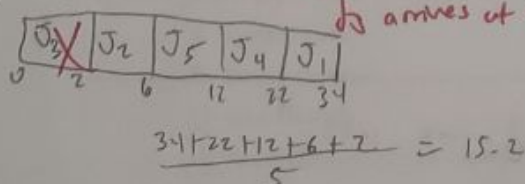 J3 arrives at
J3 J2 J5 J4 J1
0 2 6 12 22 34
34+22+12+6+2 = 15.2
5